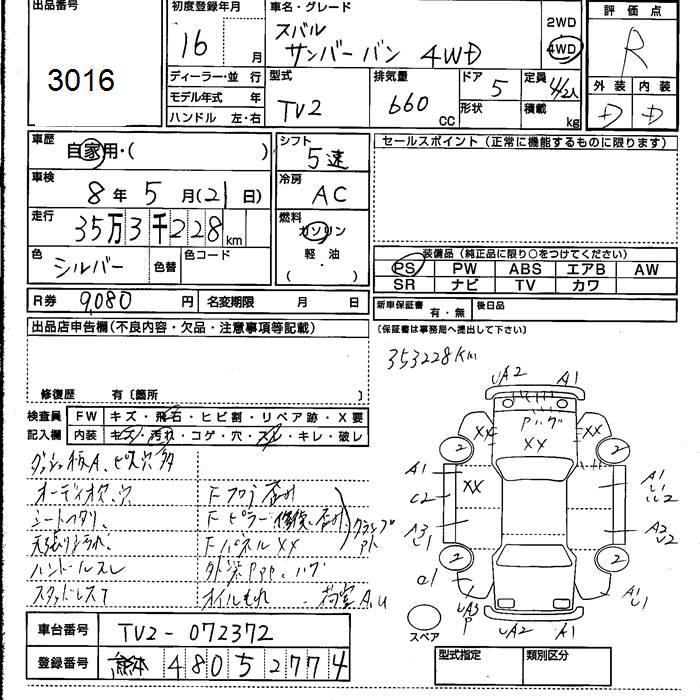 出品番号
3016
初度登録年月
16 月
車名・グレード
スバル
サンバーバン 4WD
2WD
4WD
評価点
R
外装 内装
D D
ディーラー・並行
モデル年式 年
ハンドル 左・右
型式
TV2
排気量
660 cc
ドア
5
形状
定員
4/2人
積載
kg
車歴
自家用・( )
車検
8年5月(21日)
走行
35万3千228km
色
シルバー
色替
色コード
シフト
5速
冷房
AC
燃料
ガソリン
軽・油
( ・ )
セールスポイント (正常に機能するものに限ります)
装備品 (純正品に限り○をつけてください)
PS PW ABS エアB AW
SR ナビ TV カワ
R券 9,080 円
名変期限 月 日
新車保証書 有・無
後日品
(保証書は事務局へ提出して下さい)
出品店申告欄(不良内容・欠品・注意事項等記載)
修復歴 有〔箇所 〕
353228Km
検査員
記入欄
FW キズ・飛石・ヒビ割・リペア跡・X要
内装 キズ・汚れ・コゲ・穴・スレ・キレ・破レ
ダッシュ板A、ビス穴多
オーディオ欠、穴
シートヘタリ、
天張りよごれ、
ハンドルスレ
スタッドレスT
Fフロア歪み
Fピラー修復、歪み、
FパネルXX
クランプ
外装PPP、ハゲ
オイルもれ
荷室A,U
UA2 A1
Pハゲ
XX
XX
XX
XX
2
2
2
2
A1
C2
A3
L1
a1
UA3
P
UA2 A1
A1
L1
A2
A1
L1
スペア
車台番号 TV2-072372
登録番号 熊本 4805 2774
型式指定
類別区分